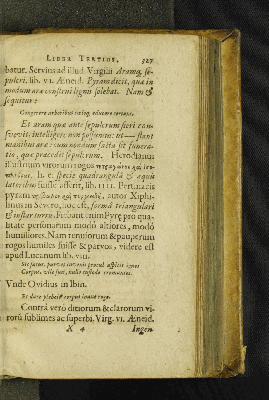 LIBER TERTIUS. 327
batur. Servius ad illud Virgilii Aramq, se-
pulcri. lib. VI. Æneid. Pyram dicit, quæ in
modum aræ construi lignis solebat. Nam &
sequitur:
Congerere arboribus cæloq, educere certant.
Et aram quæ ante sepulcrum fieri con-
suevit, intelligere non possumus: ut stant
manibus aræ: cum nondum facta sit funera-
tio, quæ præcedit sepulcrum. Herodianus
illustrium virorum rogos
h. e. specie quadrangulâ & æquis
lateribus fuisse asserit, lib. IIII. Pertinacis
pyram autor Xiphi-
linus in Severo, hoc est, formâ triangulari
& instar turris. Fiebant enim Pyræ pro qua-
litate personarum modò altiores, modò
humiliores. Nam tenuiorum & pauperum
rogos humiles fuisse & parvos, videre est
apud Lucanum lib. VIII.
Sic fatus, parvos juvenis procul aspicit ignes
Corpus vile suis, nullo custode cremantes.
Vnde Ovidius in Ibin.
Et dare plebeio corpus inane rogo.
Contrà verò ditiorum & clarorum vi-
rorū sublimes ac superbi. Virg. VI. Æneid.
X 4 Ingen-